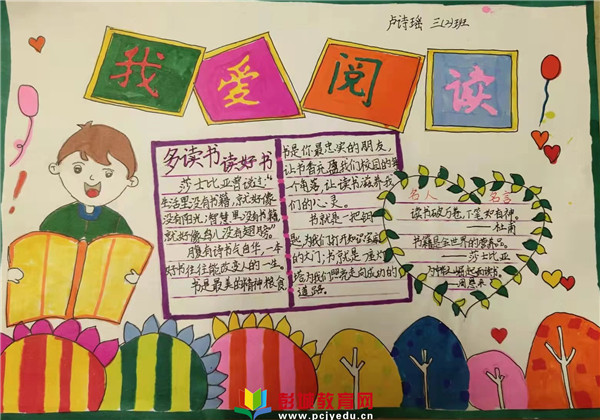 卢诗瑶 三(2)班
我爱阅读
多读书 读好书
莎士比亚曾说过:“
生活里没有书籍,就好像
没有阳光;智慧里没有书籍,
就好像鸟儿没有翅膀。”
腹有诗书气自华,一本
好书往往能改变人的一生。
书是最美的精神粮食
书是你最忠实的朋友,
让书香充盈我们校园的每
个角落,让读书滋养我
们的心灵。
书就是一把钥
匙,为我们打开知识宝库
的大门;书就是一座灯
塔为我们照亮走向成功的
道路。
名人 名言
读书破万卷,下笔如有神。
——杜甫
书籍是全世界的营养品。
——莎士比亚
为中华之崛起而读书。
——周恩来
彭源教育网
www.pcjyedu.cn